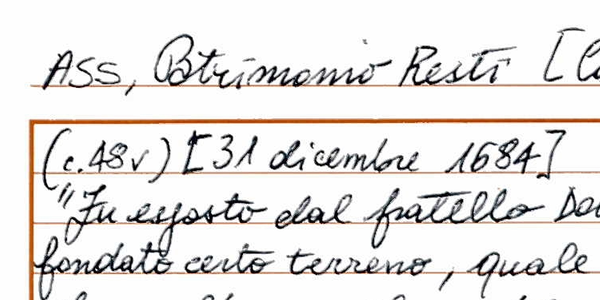 ASS, Patrimonio Resti [
(c.48v) [31 dicembre 1684]
"Fu esposto dal fratello
fondato certo terreno, quale